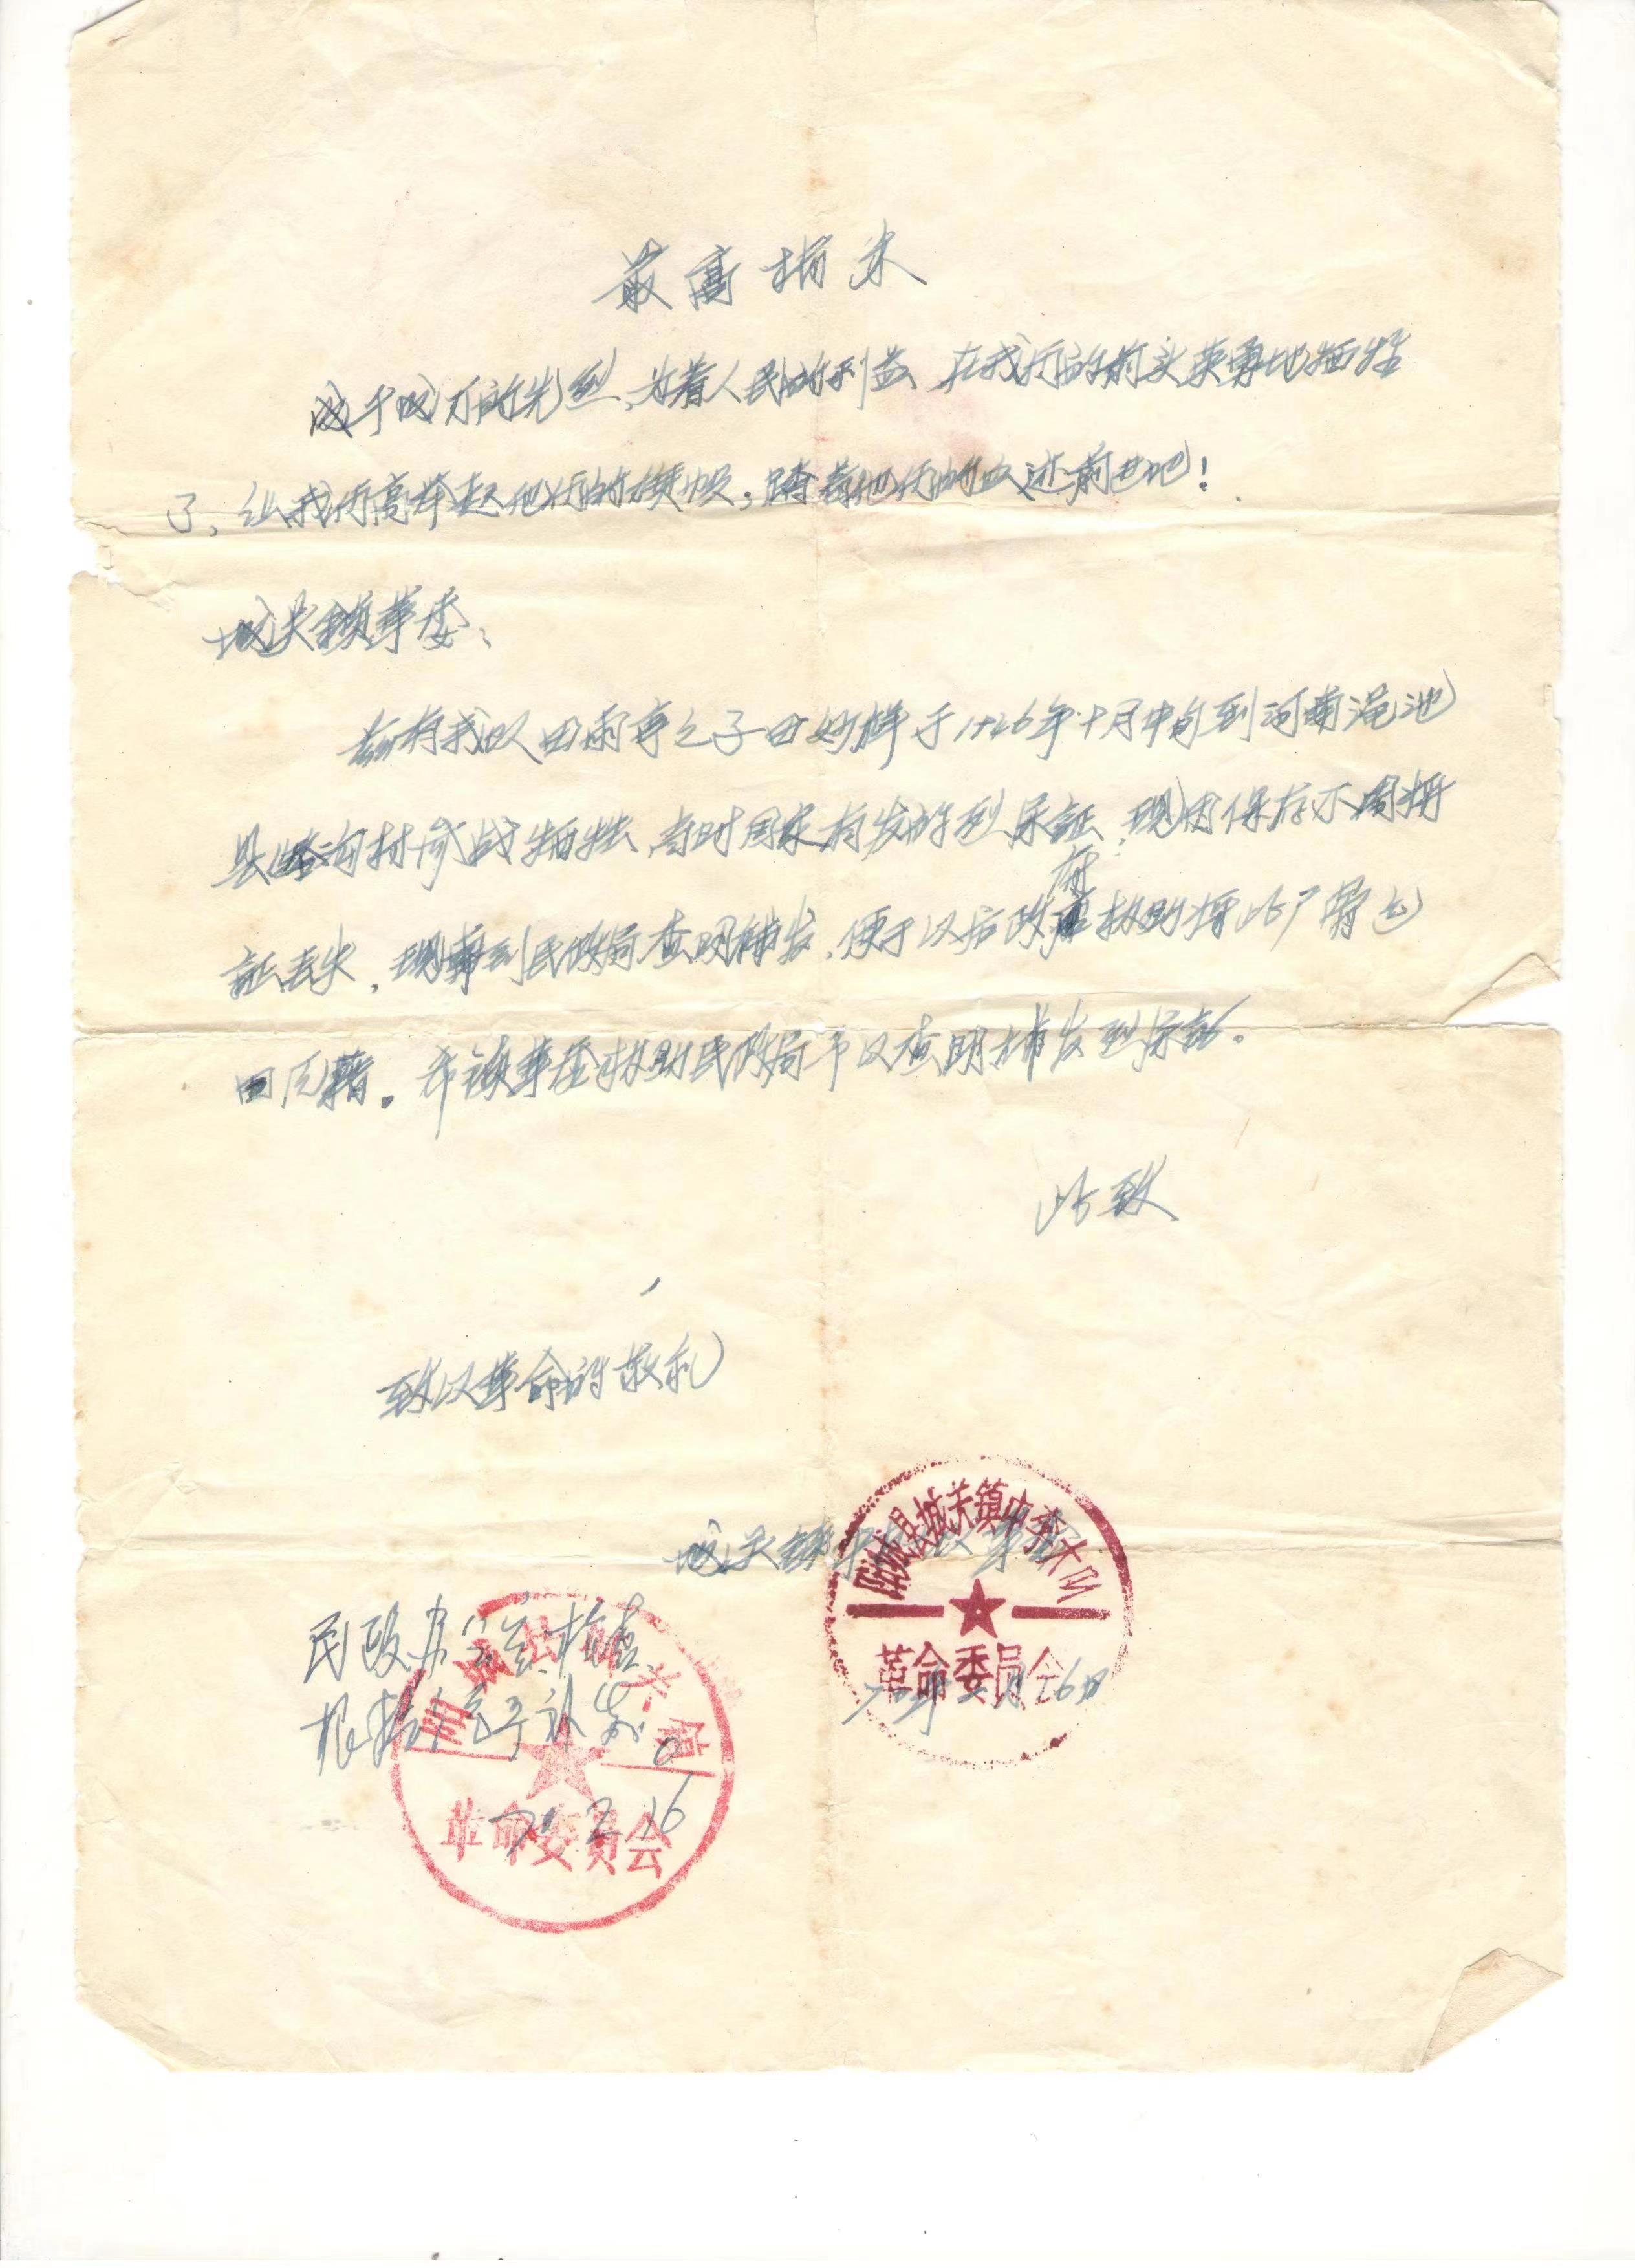 最高指示
成千成万的先烈,为着人民的利益,在我们的前头英勇地牺牲
了,让我们高举起他们的旗帜,踏着他们的血迹前进吧!
城关镇革委:
兹有我队田雨亭之子田妙祥于1926年十月中旬到河南渑池
县沟村参战牺牲,当时国家有发的烈属证,现因保存不周将
证丢失,现要到民政局查明补发,便于以后政府协助将此尸骨包
回原籍。希镇革委协助民政局予以查明补发烈属证。
此致
致以革命的敬礼
城关镇 革委
县城关镇中 大队
革命委员会
71年2月16日
民政办公室核查
根据情况予补发。
71.2.16
城关镇
革命委员会